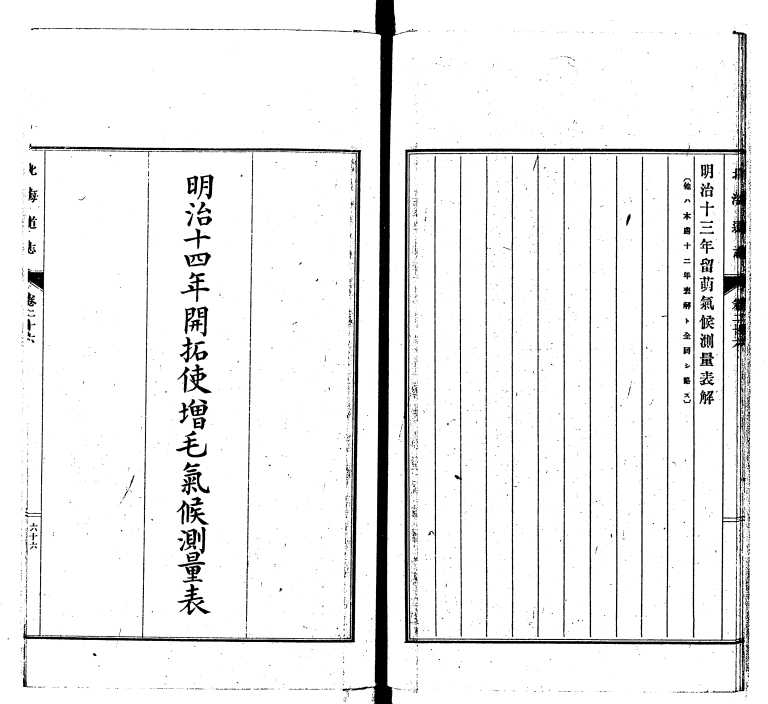 北海道志
卷二十六
明治十三年留萌氣候測量表解
（他ハ本處十二年表解ト全同シ略ス）
明治十四年開拓使增毛氣候測量表
北海道志
卷二十六
六十六